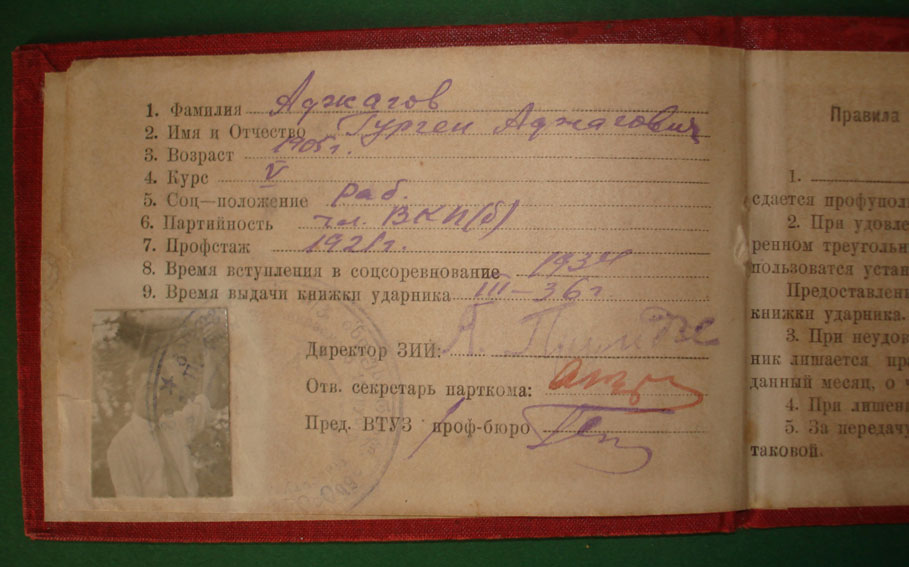 1. Фамилия Аджагов
2. Имя и Отчество Гурген Аджагович
3. Возраст 1905г.
4. Курс V
5. Соц—положение раб.
6. Партийность чл. ВКП(б)
7. Профстаж 1921г.
8. Время вступления в соцсоревнование 1934
9. Время выдачи книжки ударника III—36г.
Директор ЗИЙ:
Отв. секретарь парткома:
Пред. ВТУЗ проф-бюро
Правила
1.
сдается профупол
2. При удовле
ренном треугольн
пользоватся устан
Предоставлени
книжки ударника.
3. При неудов
ник лишается пра
данный месяц, о ч
4. При лишени
5. За передачу
таковой.